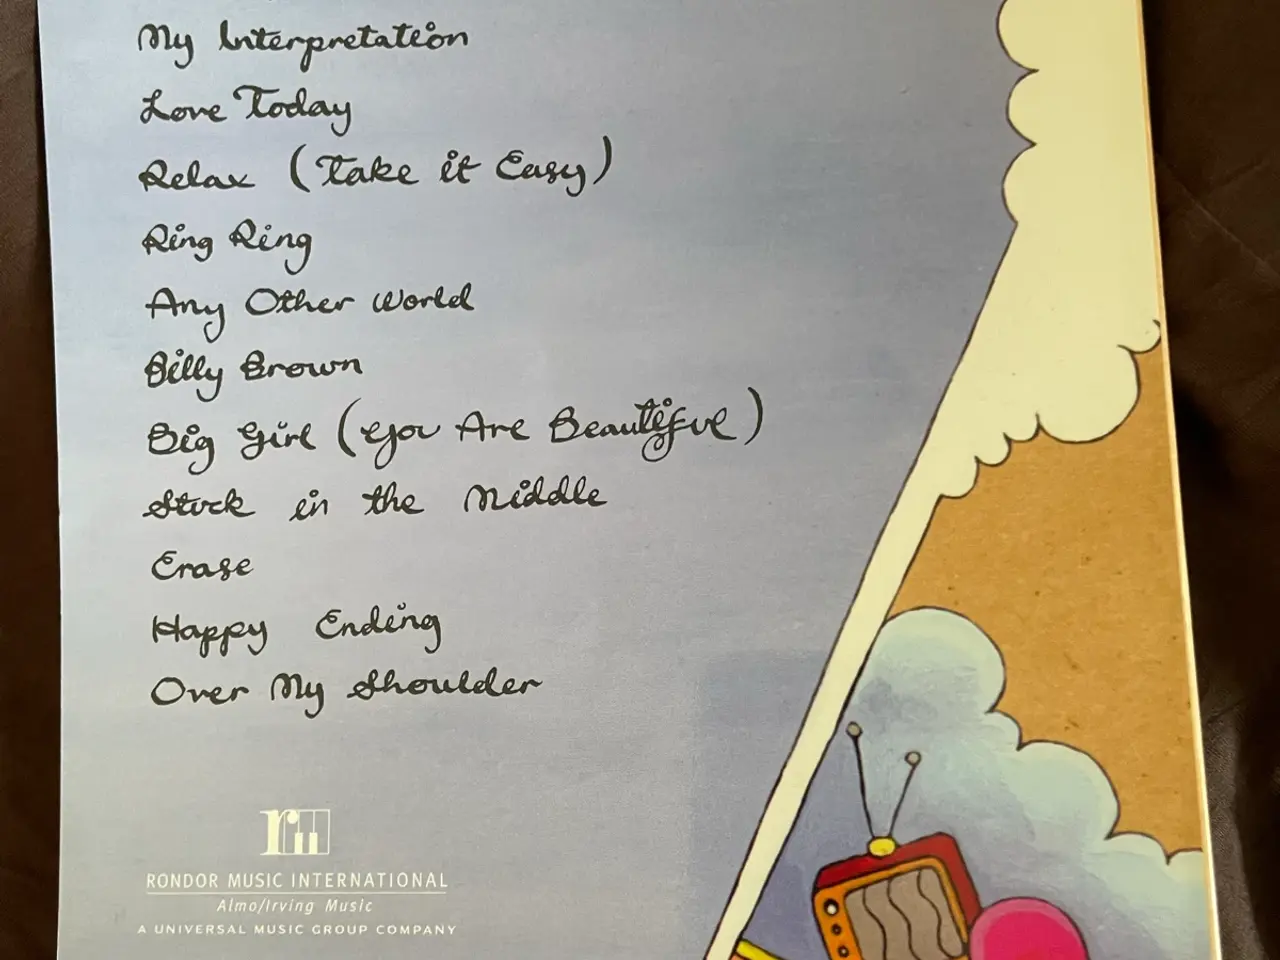 My Interpretation
Love Today
Relax (Take it Easy)
Ring Ring
Any Other World
Billy Brown
Big Girl (You Are Beautiful)
Stuck in the Middle
Erase
Happy Ending
Over My Shoulder
rm
RONDOR MUSIC INTERNATIONAL
Almo/Irving Music
A UNIVERSAL MUSIC GROUP COMPANY